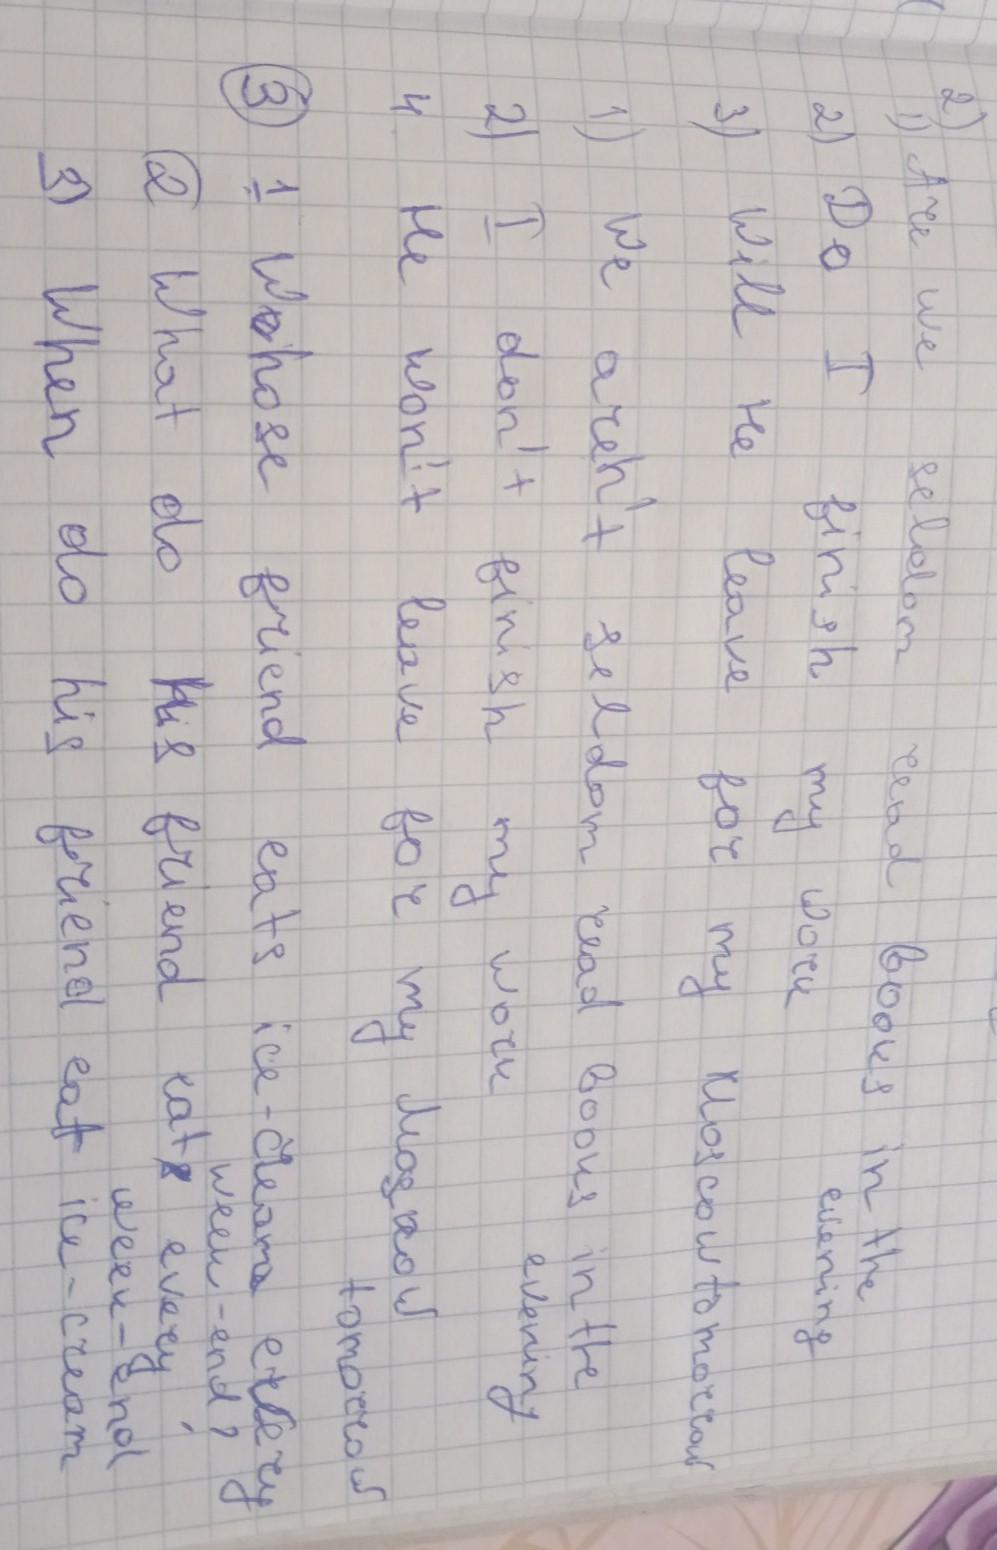 2)
1) Are we seldom read books in the
evening
2) Do I finish my work
3) Will He leave for my Moscow tomorrow
1) We aren't seldom read books in the
evening
2) I don't finish my work
4 He won't leave for my Moscow
tomorrow
3) 1 Whose friend eats ice-cream every
week-end?
2 What do his friend eat every
week-end
3) When do his friend eat ice-cream